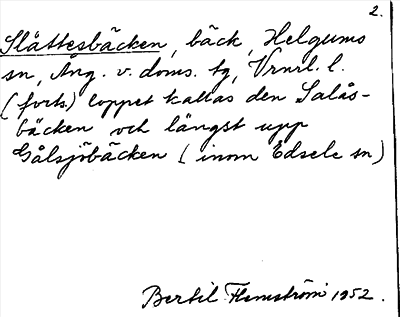 2.
Slåttesbäcken, bäck, Helgums
sn, Ång. v. doms. tg, Vrnrl. l.
(forts.) loppet kallas den Salås-
bäcken och längst upp
Gålsjöbäcken (inom Edsele sn)
Bertil Flemström 1952.